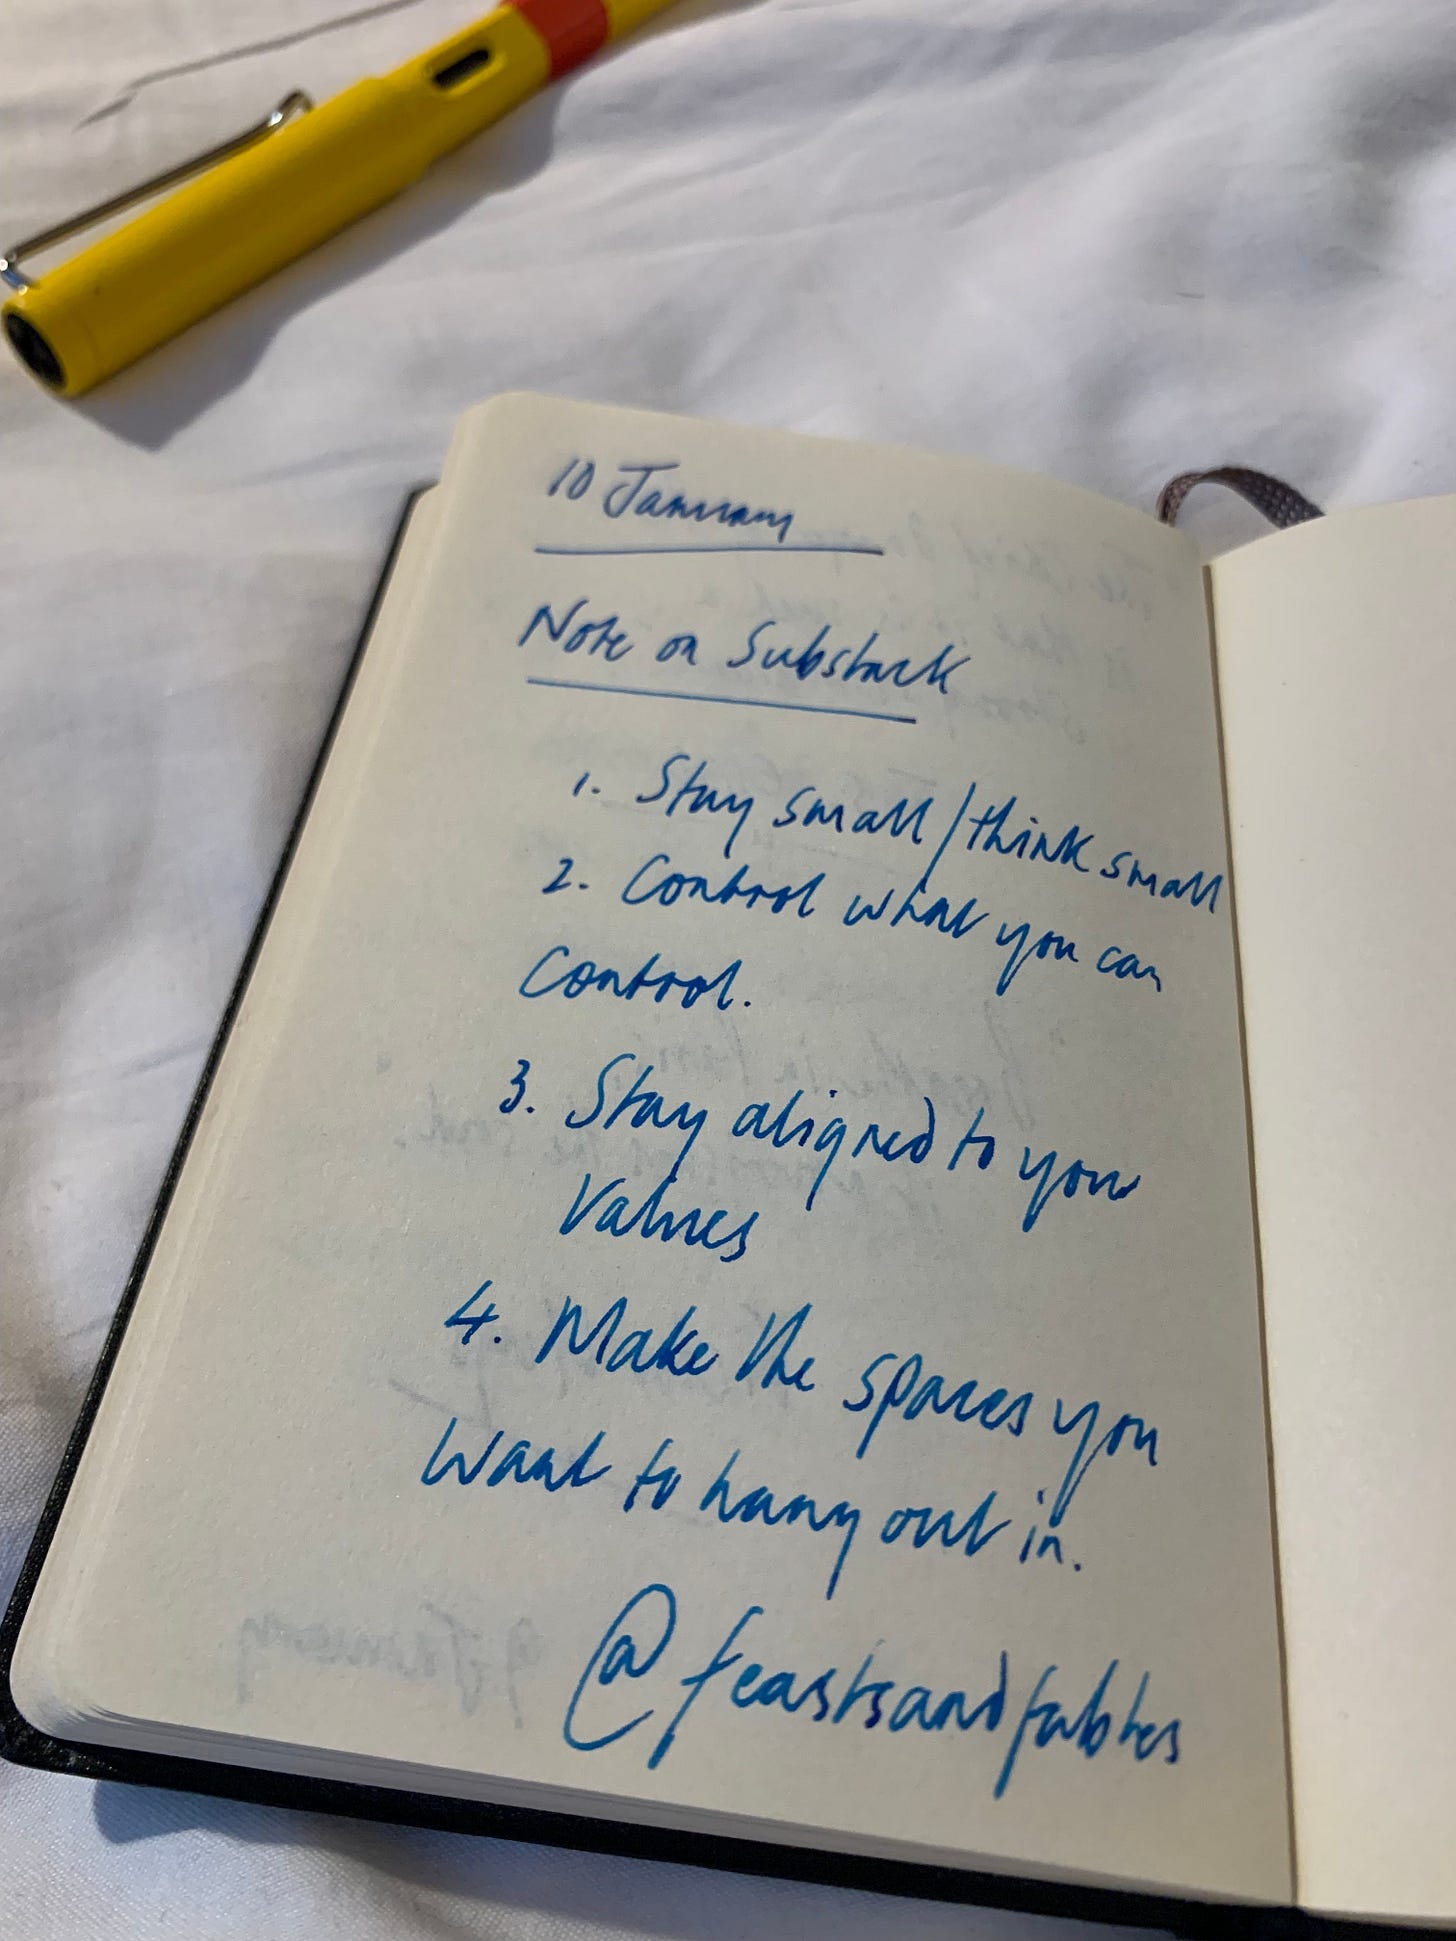 10 January
Note on Substack
1. Stay small/think small
2. Control what you can
Control.
3. Stay aligned to your
Values
4. Make the spaces you
Want to hang out in.
@feastsandfables
9 January